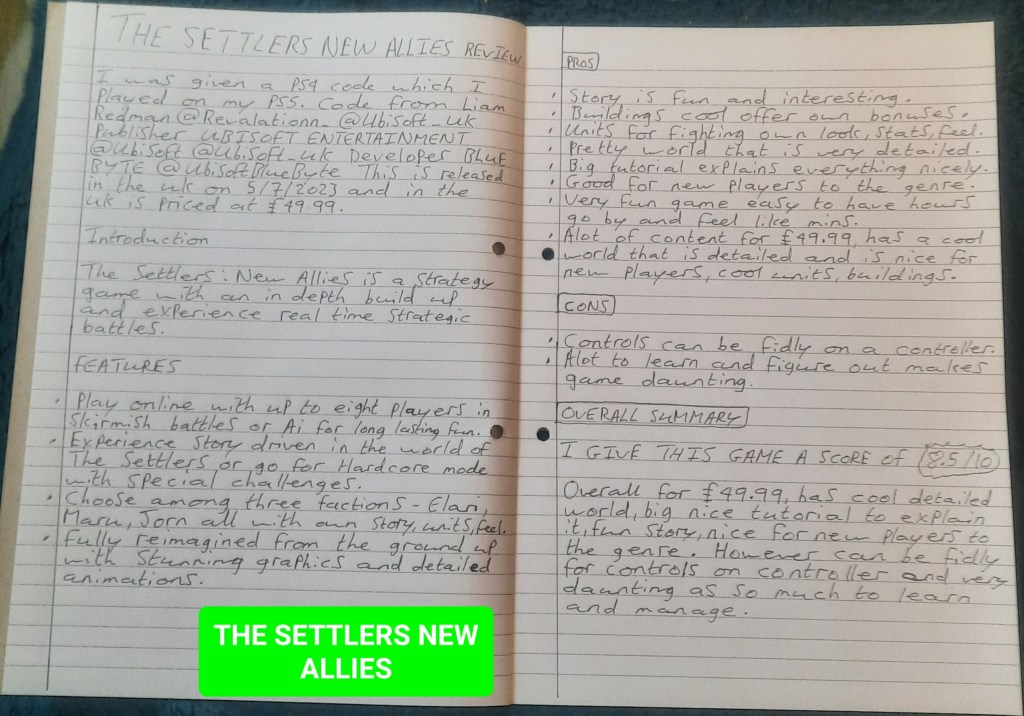 THE SETTLERS NEW ALLIES REVIEW
I was given a PS4 code which I
Played on my PS5. Code from Liam
Redman @Revalationn_ @Ubisoft_uk
Publisher UBISOFT ENTERTAINMENT
@Ubisoft @Ubisoft_uk Developer BLUE
BYTE @UbisoftBlueByte This is released
in the uk on 5/7/2023 and in the
uk is priced at £49.99.
Introduction
The Settlers: New Allies is a strategy
game with an in depth build up
and experience real time strategic
battles.
FEATURES
• Play online with up to eight players in
Skirmish battles or Ai for long lasting fun.
• Experience Story driven in the world of
The Settlers or go for Hardcore mode
with special challenges.
• Choose among three factions - Elari,
Maru, Jorn all with own story, units, feel.
• Fully reimagined from the ground up
with stunning graphics and detailed
animations.
PROS
• Story is fun and interesting.
• Buildings cool offer own bonuses.
• Units for fighting own look, stats, feel.
• Pretty world that is very detailed.
• Big tutorial explains everything nicely.
• Good for new players to the genre.
• Very fun game easy to have hours
go by and feel like mins.
• Alot of content for £49.99, has a cool
world that is detailed and is nice for
new players, cool units, buildings.
CONS
• Controls can be fidly on a controller.
• Alot to learn and figure out makes
game daunting.
OVERALL SUMMARY
I GIVE THIS GAME A SCORE OF 8.5/10
Overall for £49.99, has cool detailed
world, big nice tutorial to explain
it, fun story, nice for new players to
the genre. However can be fidly
for controls on controller and very
daunting as so much to learn
and manage.
THE SETTLERS NEW
ALLIES